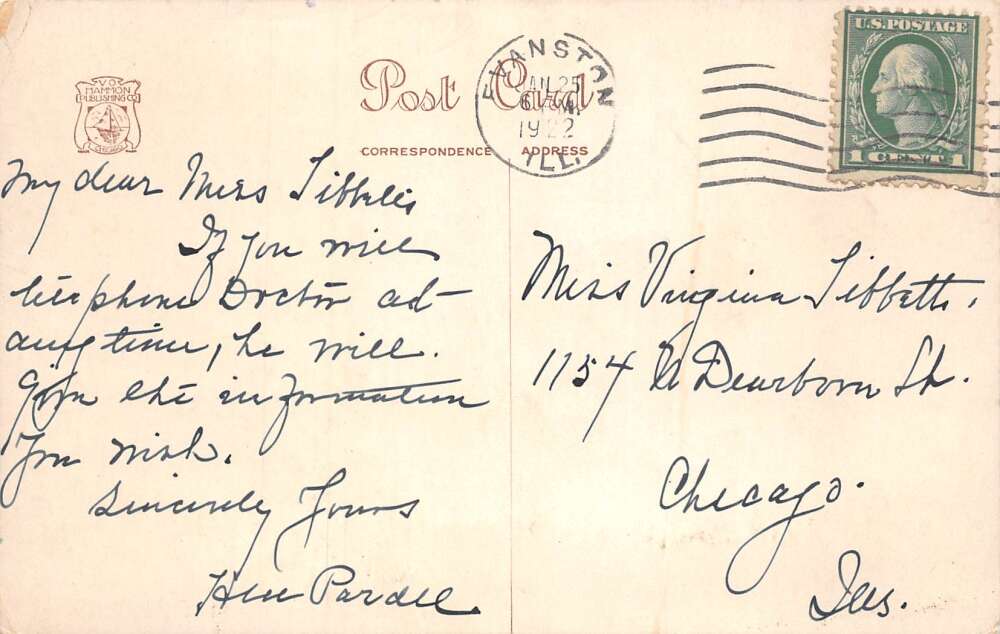 V.O.
HAMMON
PUBLISHING CO.
CHICAGO
Post Card
CORRESPONDENCE
ADDRESS
EVANSTON
JAN 25
1922
ILL.
U.S. POSTAGE
1 CENT 1
My dear Miss Tibbetts
If you will
telephone Doctor at
any time, he will.
Give the information
you wish.
Sincerely Yours
Pardee
Miss Virginia Tibbetts.
1154 N Dearborn St.
Chicago.
Ills.